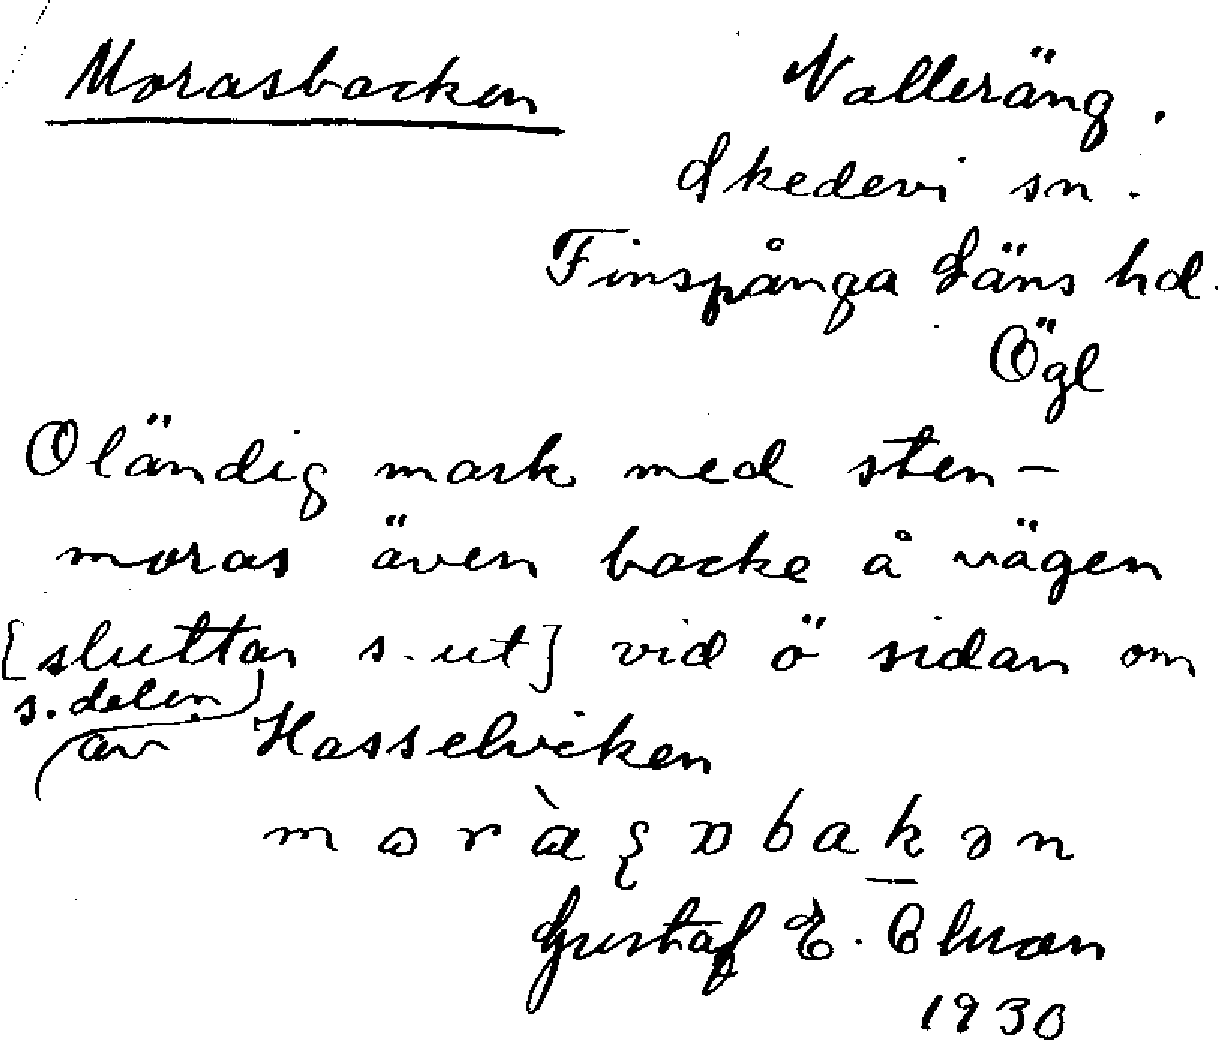 Morasbacken Valleräng.
Skedevi sn.
Finspånga Läns hd.
Ögl
Oländig mark med sten-
moras även backe å vägen
[sluttar s. ut] vid ö sidan om
s. delen
av Hasselviken
Gustaf E.
1930